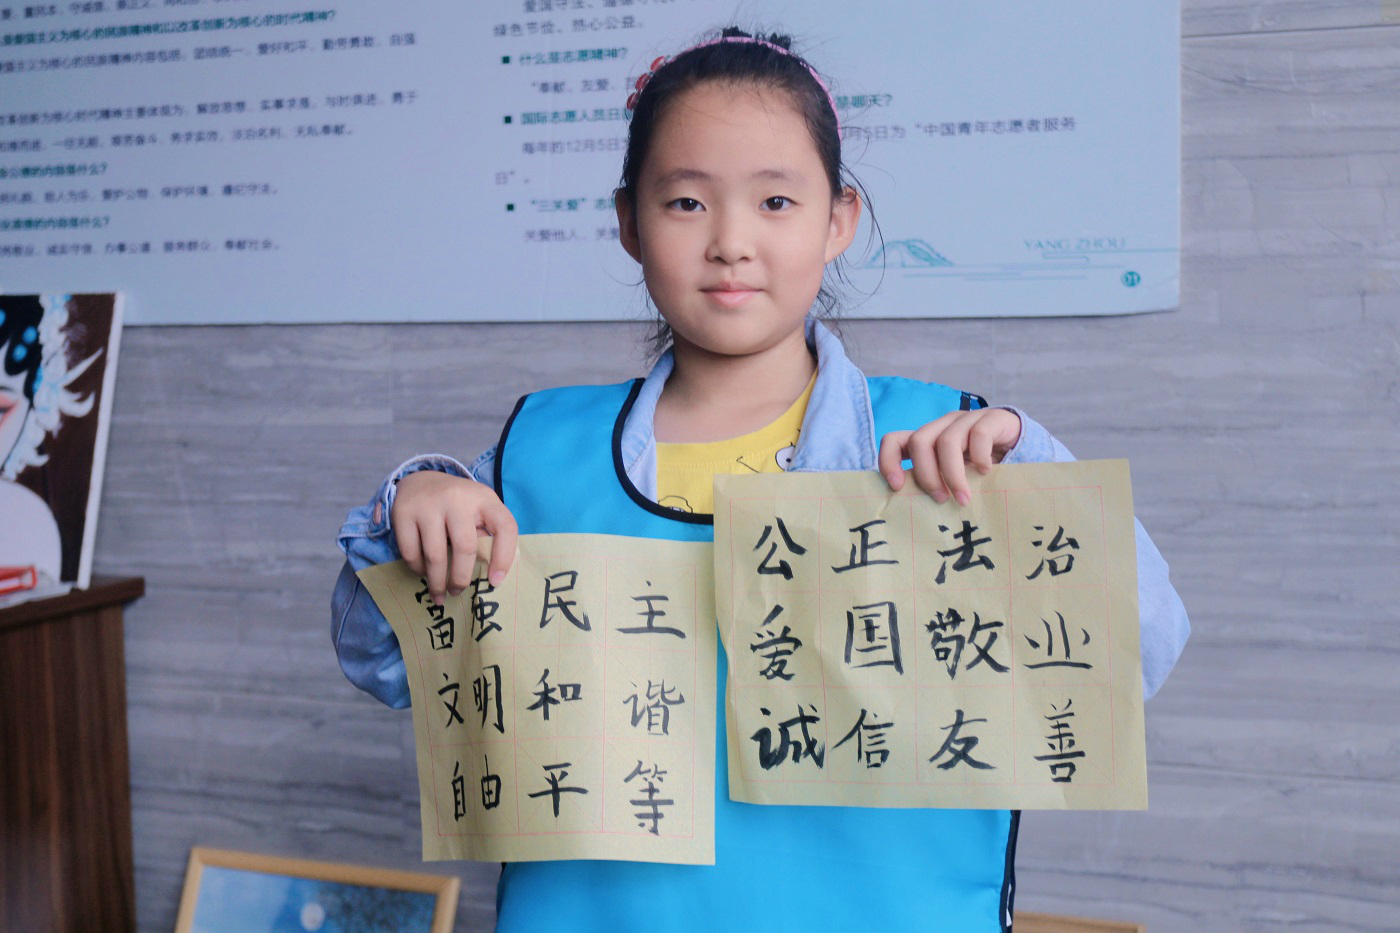 是爱国主义为核心的民族精神和以改革创新为核心的时代精神？
国主义为核心的民族精神内容包括：团结统一、爱好和平、勤劳勇敢、自强
改革创新为核心的时代精神主要体现为：解放思想、实事求是、与时俱进、勇于
知难而进、一往无前、艰苦奋斗、务求实效、淡泊名利、无私奉献。
公德的内容是什么？
明礼貌、助人为乐、爱护公物、保护环境、遵纪守法。
业道德的内容是什么？
岗敬业、诚实守信、办事公道、服务群众、奉献社会。
绿色节俭、热心公益。
■ 什么是志愿精神？
“奉献、友爱、
■ 国际志愿人员日
是哪天？
每年的12月5日为
月5日为“中国青年志愿者服务
日”。
■ “三关爱”志
关爱他人、关爱
YANG ZHOU
01
富强 民 主
文明 和 谐
自由 平 等
公 正 法 治
爱 国 敬 业
诚 信 友 善